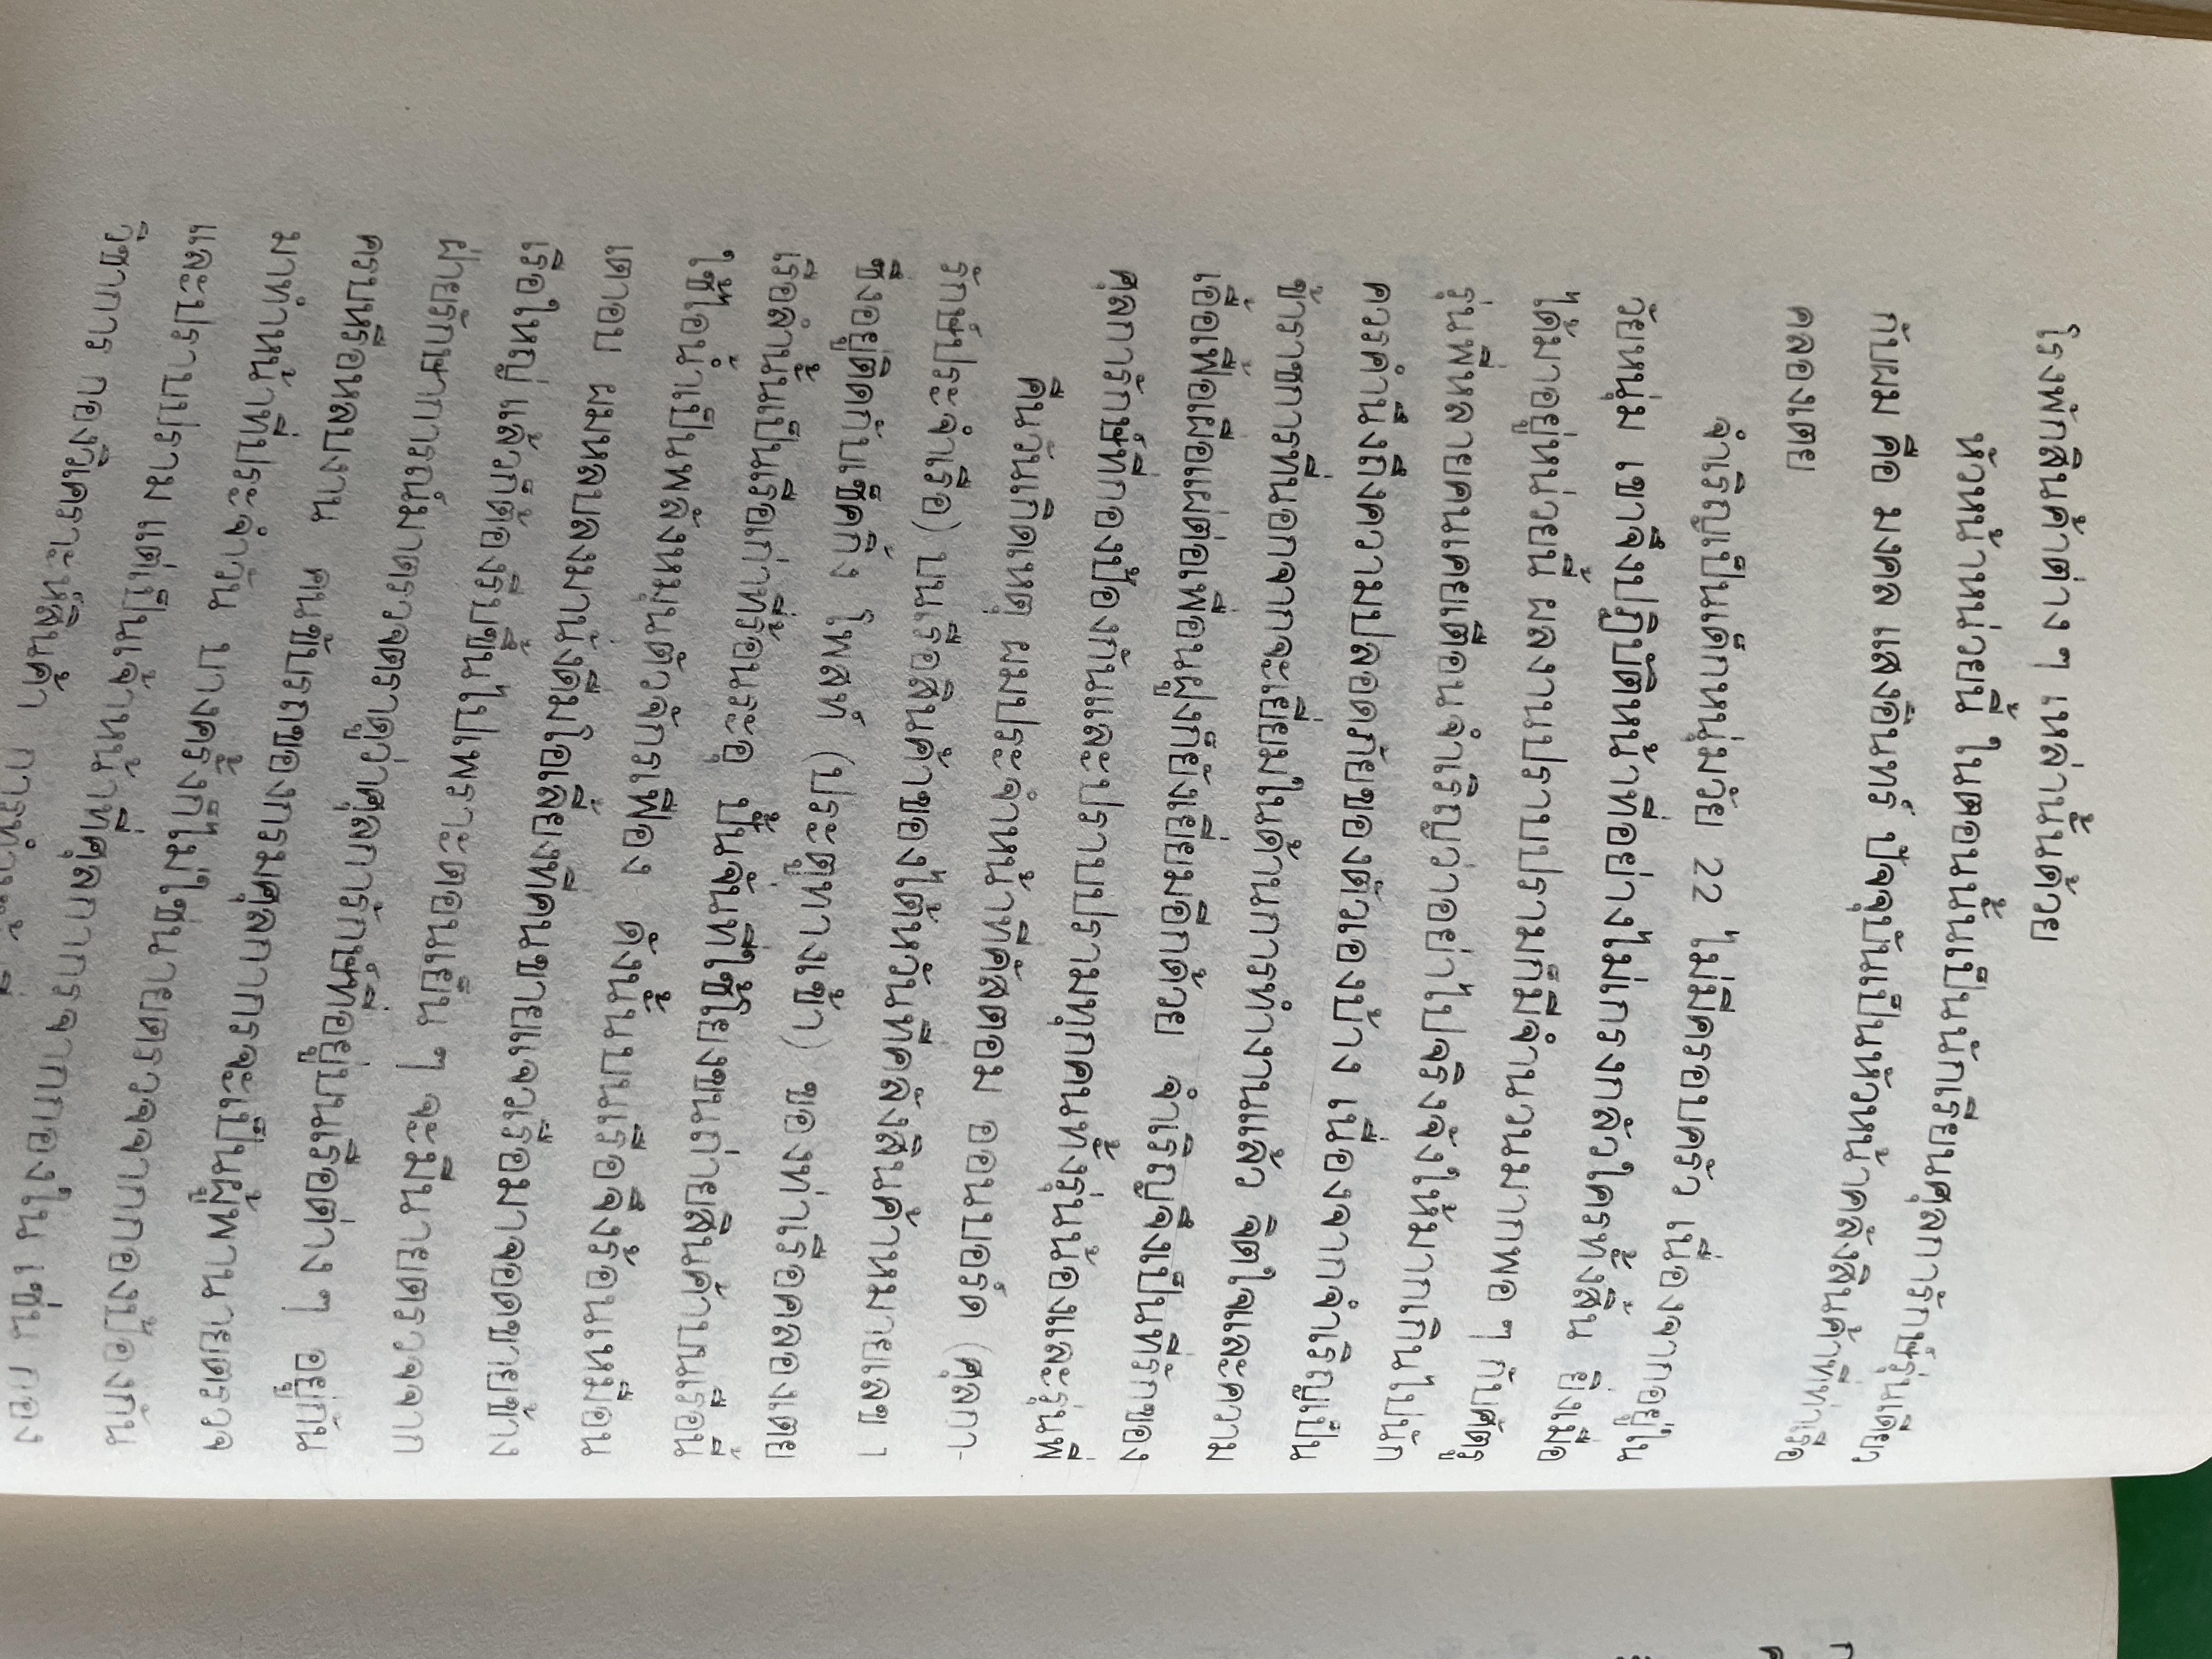 โรงพักสินค้าต่าง ๆ เหล่านั้นด้วย
หัวหน้าหน่วยนี้ ในตอนนั้นเป็นนักเรียนศุลการักษ์รุ่นเดียว
กับผม คือ มงคล แสงอินทร์ ปัจจุบันเป็นหัวหน้าคลังสินค้าที่ท่าเรือ
คลองเตย
จำเริญเป็นเด็กหนุ่มวัย 22 ไม่มีครอบครัว เนื่องจากอยู่ใน
วัยหนุ่ม เขาจึงปฏิบัติหน้าที่อย่างไม่เกรงกลัวใครทั้งสิ้น ยิ่งเมื่อ
ได้มาอยู่หน่วยนี้ ผลงานปราบปรามก็มีจำนวนมากพอ ๆ กับศัตรู
รุ่นพี่หลายคนเคยเตือนจำเริญว่าอย่าไปจริงจังให้มากเกินไปนัก
ควรคำนึงถึงความปลอดภัยของตัวเองบ้าง เนื่องจากจำเริญเป็น
ข้าราชการที่นอกจากจะเยี่ยมในด้านการทำงานแล้ว จิตใจและความ
เอื้อเฟื้อเผื่อแผ่ต่อเพื่อนฝูงก็ยังเยี่ยมอีกด้วย จำเริญจึงเป็นที่รักของ
ศุลการักษ์ที่กองป้องกันและปราบปรามทุกคนทั้งรุ่นน้องและรุ่นพี่
คืนวันเกิดเหตุ ผมประจำหน้าที่คัสตอม ออนบอร์ด (ศุลกา-
รักษ์ประจำเรือ) บนเรือสินค้าของไต้หวันที่คลังสินค้าหมายเลข 1
ซึ่งอยู่ติดกับเช็คกิ้ง โพสท์ (ประตูทางเข้า) ของท่าเรือคลองเตย
เรือลำนั้นเป็นเรือเก่าที่ร้อนระอุ ปั้นจั่นที่ใช้โยงขนถ่ายสินค้าบนเรือนี้
ใช้ไอน้ำเป็นพลังหมุนตัวจักรเฟือง ดังนั้นบนเรือจึงร้อนเหมือน
เตาอบ ผมหลบลงมานั่งดื่มโอเลี้ยงที่คนขายแจวเรือมาจอดขายข้าง
เรือใหญ่ แล้วก็ต้องรีบขึ้นไปเพราะตอนเย็น ๆ จะมีนายตรวจจาก
ฝ่ายรักษาการณ์มาตรวจตราดูว่าศุลการักษ์ที่อยู่บนเรือต่าง ๆ อยู่กัน
ครบหรือหลบงาน คนขับรถของกรมศุลกากรจะเป็นผู้พานายตรวจ
มาทำหน้าที่ประจำวัน บางครั้งก็ไม่ใช่นายตรวจจากกองป้องกัน
และปราบปราม แต่เป็นเจ้าหน้าที่ศุลกากรจากกองใน เช่น กอง
วิชาการ กองวิเคราะห์สินค้า